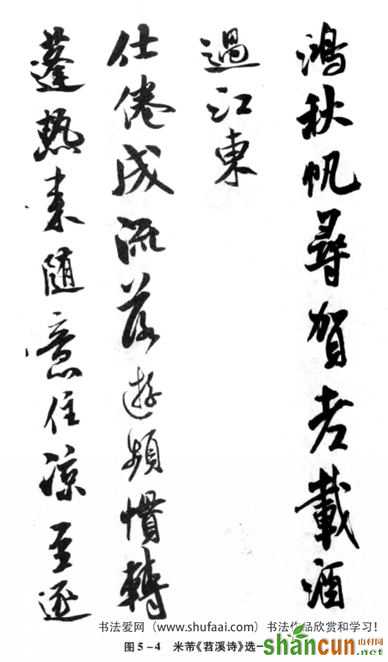 鴻秋帆尋賀老載酒
過江東
仕倦成流落遊頻慣轉
蓬熱来随意住涼至逐
书法爱网(www.shufaai.com)书法作品欣赏和学习!
图5-4 米芾《苕溪诗》选一
shancun
山村网
.net